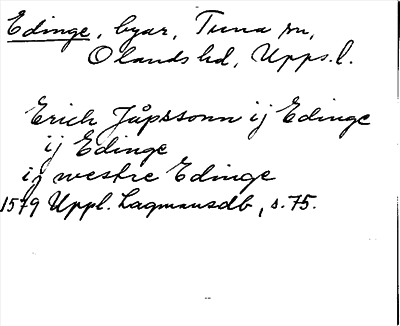 Edinge, byar, Tuna sn,
Olands hd, Upps.l.
Erich Jåpssonn ij Edinge
ij Edinge
ij westre Edinge
1579 Uppl. Lagmansdb, s. 75.